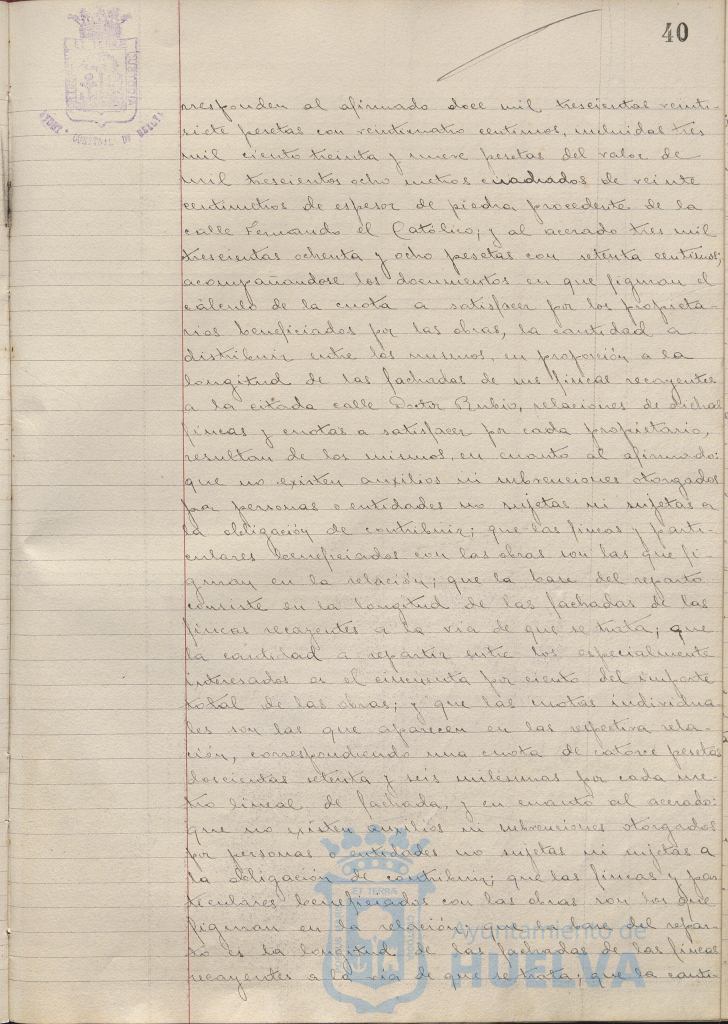 40
rresponden al afirmado doce mil trescientas veinti-
siete pesetas con veinticuatro centimos, incluidas tres
mil ciento treinta y nueve pesetas del valor de
mil trescientos ocho metros cuadrados de veinte
centimetros de espesor de piedra procedente de la
calle Fernando el Católico, y al acerado tres mil
trescientas ochenta y ocho pesetas con setenta centimos;
acompañandose los documentos en que figuran el
cálculo de la cuota a satisfacer por los propieta-
rios beneficiados por las obras, la cantidad a
distribuir entre los mismos, en proporción a la
longitud de las fachadas de sus fincas recayentes
a la citada calle Doctor Rubio, relaciones de dichas
fincas y cuotas a satisfacer por cada propietario,
resultan de los mismos, en cuanto al afirmado:
que no existen auxilios ni subvenciones otorgados
por personas o entidades no sujetas ni sujetas a
la obligación de contribuir; que las fincas y parti-
culares beneficiados con las obras son las que fi-
guran en la relación; que la base del reparto
consiste en la longitud de las fachadas de las
fincas recayentes a la via de que se trata; que
la cantidad a repartir entre los especialmente
interesados es el cincuenta por ciento del importe
total de las obras; y que las cuotas individua-
les son las que aparecen en las respectiva rela-
ción, correspondiendo una cuota de catorce pesetas
doscientas setenta y seis milésimas por cada me-
tro lineal de fachada, y en cuanto al acerado:
que no existen auxilios ni subvenciones otorgados
por personas o entidades no sujetas ni sujetas a
la obligación de contribuir; que las fincas y par-
ticulares beneficiados con las obras son los que
figuran en la relación; que la base del repar-
to es la longitud de las fachadas de las fincas
recayentes a la via de que se trata; que la canti-
Ayuntamiento de
HUELVA